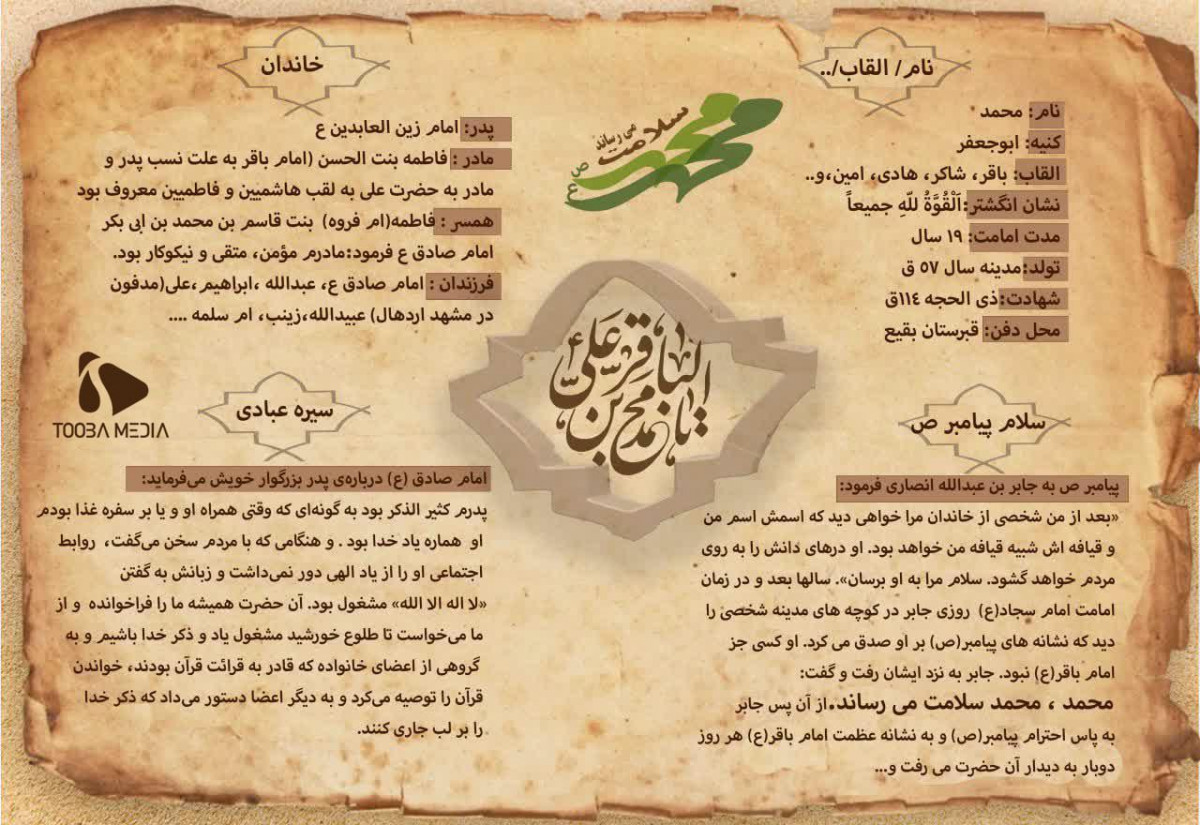 نام/ القاب/..
نام: محمد
کنیه: ابوجعفر
القاب: باقر، شاکر، هادی، امین،و..
نشان انگشتر:اَلْقُوَّةُ للّهِ جمیعاً
مدت امامت: ۱۹ سال
تولد:مدینه سال ۵۷ ق
شهادت:ذی الحجه ۱۱٤ق
محل دفن: قبرستان بقیع
محمد
محمد
سلامت
می رساند
ص
ع
خاندان
پدر: امام زین العابدین ع
مادر : فاطمه بنت الحسن (امام باقر به علت نسب پدر و
مادر به حضرت علی به لقب هاشمیین و فاطمیین معروف بود
همسر : فاطمه(ام فروه) بنت قاسم بن محمد بن ابی بکر
امام صادق ع فرمود:مادرم مؤمن، متقی و نیکوکار بود.
فرزندان : امام صادق ع، عبدالله ،ابراهیم،علی(مدفون
در مشهد اردهال) عبیدالله،زینب، ام سلمه ....
سلام پیامبر ص
پیامبر ص به جابر بن عبدالله انصاری فرمود:
«بعد از من شخصی از خاندان مرا خواهی دید که اسمش اسم من
و قیافه اش شبیه قیافه من خواهد بود. او درهای دانش را به روی
مردم خواهد گشود. سلام مرا به او برسان». سالها بعد و در زمان
امامت امام سجاد(ع) روزی جابر در کوچه های مدینه شخصی را
دید که نشانه های پیامبر(ص) بر او صدق می کرد. او کسی جز
امام باقر(ع) نبود. جابر به نزد ایشان رفت و گفت:
محمد ، محمد سلامت می رساند.از آن پس جابر
به پاس احترام پیامبر(ص) و به نشانه عظمت امام باقر(ع) هر روز
دوبار به دیدار آن حضرت می رفت و...
TOOBA MEDIA
سیره عبادی
امام صادق (ع) درباره‌ی پدر بزرگوار خویش می‌فرماید:
پدرم کثیر الذکر بود به گونه‌ای که وقتی همراه او و یا بر سفره غذا بودم
او هماره یاد خدا بود . و هنگامی که با مردم سخن می‌گفت، روابط
اجتماعی او را از یاد الهی دور نمی‌داشت و زبانش به گفتن
«لا اله الا الله» مشغول بود. آن حضرت همیشه ما را فراخوانده و از
ما می‌خواست تا طلوع خورشید مشغول یاد و ذکر خدا باشیم و به
گروهی از اعضای خانواده که قادر به قرائت قرآن بودند، خواندن
قرآن را توصیه می‌کرد و به دیگر اعضا دستور می‌داد که ذکر خدا
را بر لب جاری کنند.